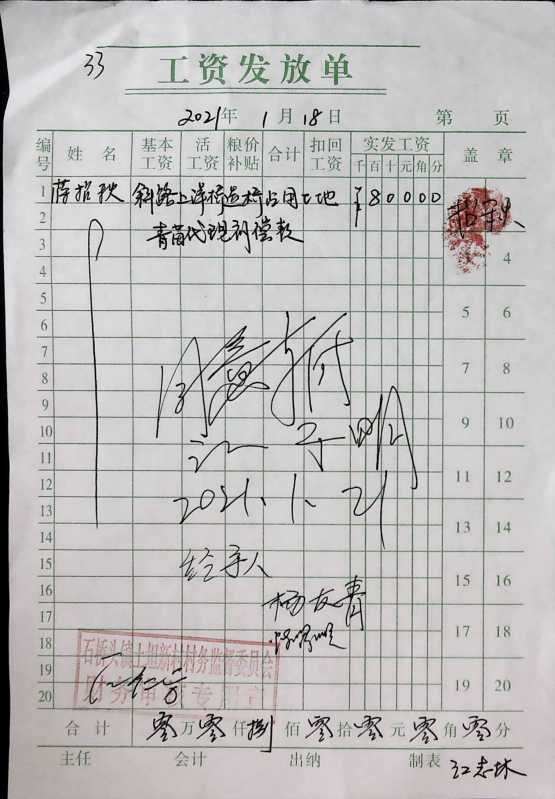 33
工资发放单
2021年 1月18日 第 页
编号 姓名 基本工资 活工资 粮价补贴 合计 扣回工资 实发工资 千百十元角分 盖章
1 蒋招秧 斜路上洋桥 占用土地 ¥80000 招秧
2 青苗代现补偿款
3 3 4
4
5 5 6
6
7 同意支付 7 8
8
9 9 10
10 江于明
11 11 12
12 2021.1.21
13 13 14
14
15 经手人 15 16
16 杨友青
17 17 18
18 石桥头镇上坦新村村务监督委员会
19 财务审核专用章 19 20
20
合计 零万零仟捌佰零拾零元零角零分
主任 会计 出纳 制表 江志林